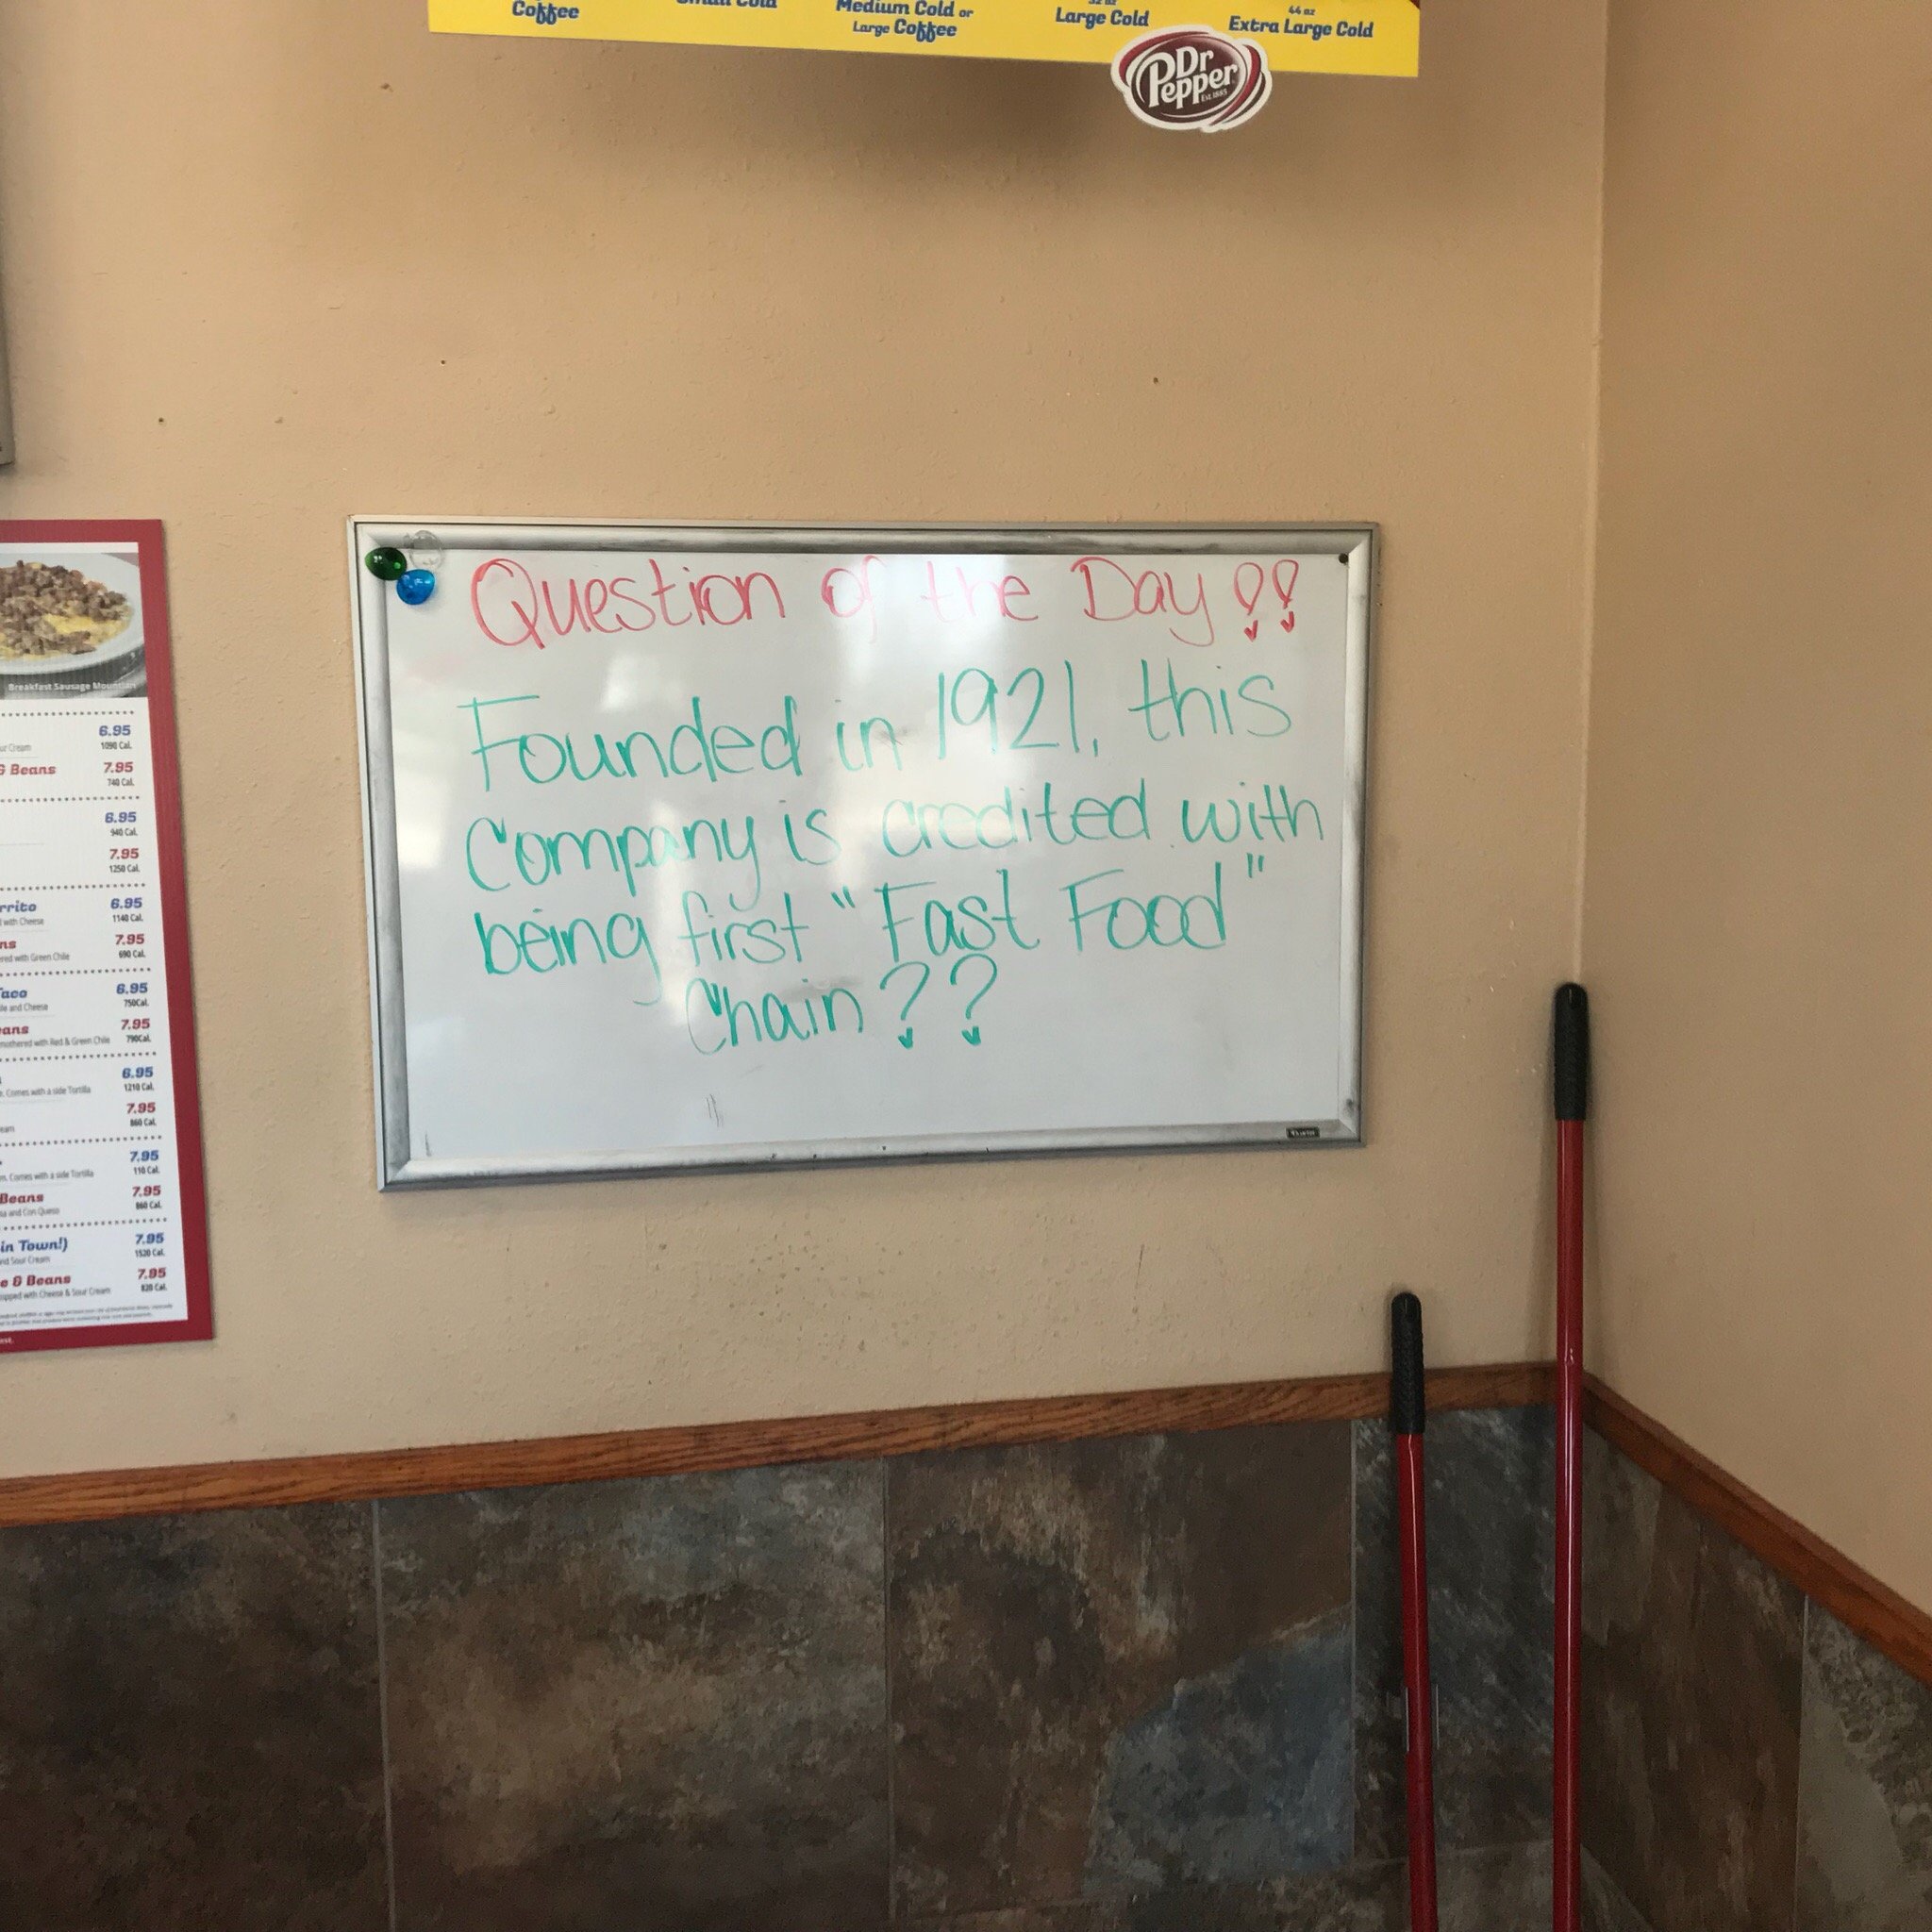 Coffee
Small Cold
Medium Cold or
Large Coffee
32 oz
Large Cold
44 oz
Extra Large Cold
Dr
Pepper
Est. 1885
Question of the Day !!
Founded in 1921, this
Company is credited with
being first "Fast Food"
Chain??
Breakfast Sausage Mountain
6.95
ur Cream 1090 Cal.
& Beans 7.95
740 Cal.
6.95
940 Cal.
7.95
1250 Cal.
rrito 6.95
with Cheese 1140 Cal.
ns 7.95
ered with Green Chile 690 Cal.
Taco 6.95
ile and Cheese 750Cal.
eans 7.95
mothered with Red & Green Chile 790Cal.
6.95
. Comes with a side Tortilla 1210 Cal.
7.95
eam 860 Cal.
7.95
. Comes with a side Tortilla 110 Cal.
Beans 7.95
sa and Con Queso 860 Cal.
in Town!) 7.95
and Sour Cream 1520 Cal.
e & Beans 7.95
opped with Cheese & Sour Cream 820 Cal.